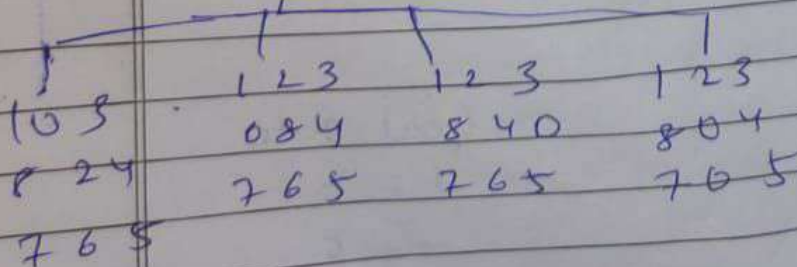 1 0 3
8 2 4
7 6 5
1 2 3
0 8 4
7 6 5
1 2 3
8 4 0
7 6 5
1 2 3
8 0 4
7 0 5